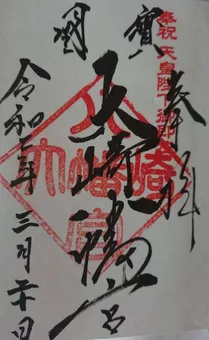 奉祝 天皇陛下御即
奉拝
寶
國
大崎八幡宮
八
大 幡 崎
宮
令和二年三月廿日